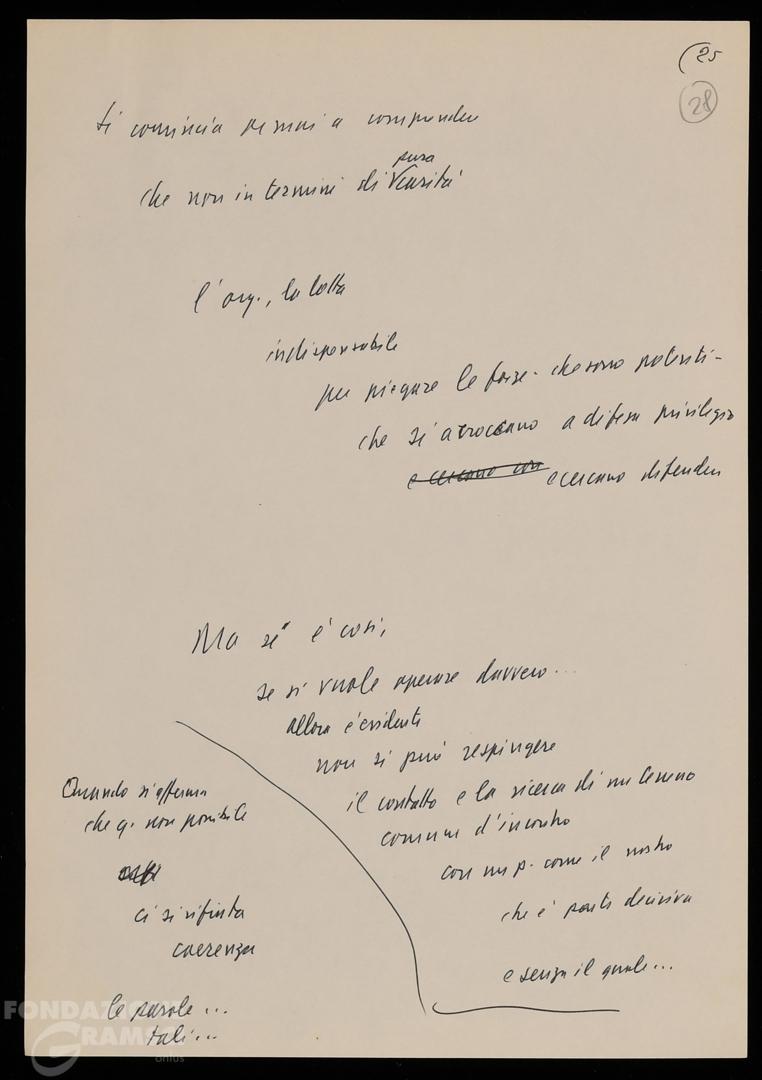 (25
28
si comincia ormai a comprendere
pura
che non in termini di carità
l'org., la lotta
indispensabile
per piegare le forze - che sono potenti -
che si arroccano a difesa privilegio
e cercano con e cercano difendere
Ma se è così,
se si vuole operare davvero...
allora è evidente
non si può respingere
il contatto e la ricerca di un terreno
comune d'incontro
con un p. come il nostro
che è parte decisiva
e senza il quale...
Quando si afferma
che q. non possibile
ci si rifiuta
coerenza
le parole...
tali...
FONDAZIONE
GRAMSCI
onlus